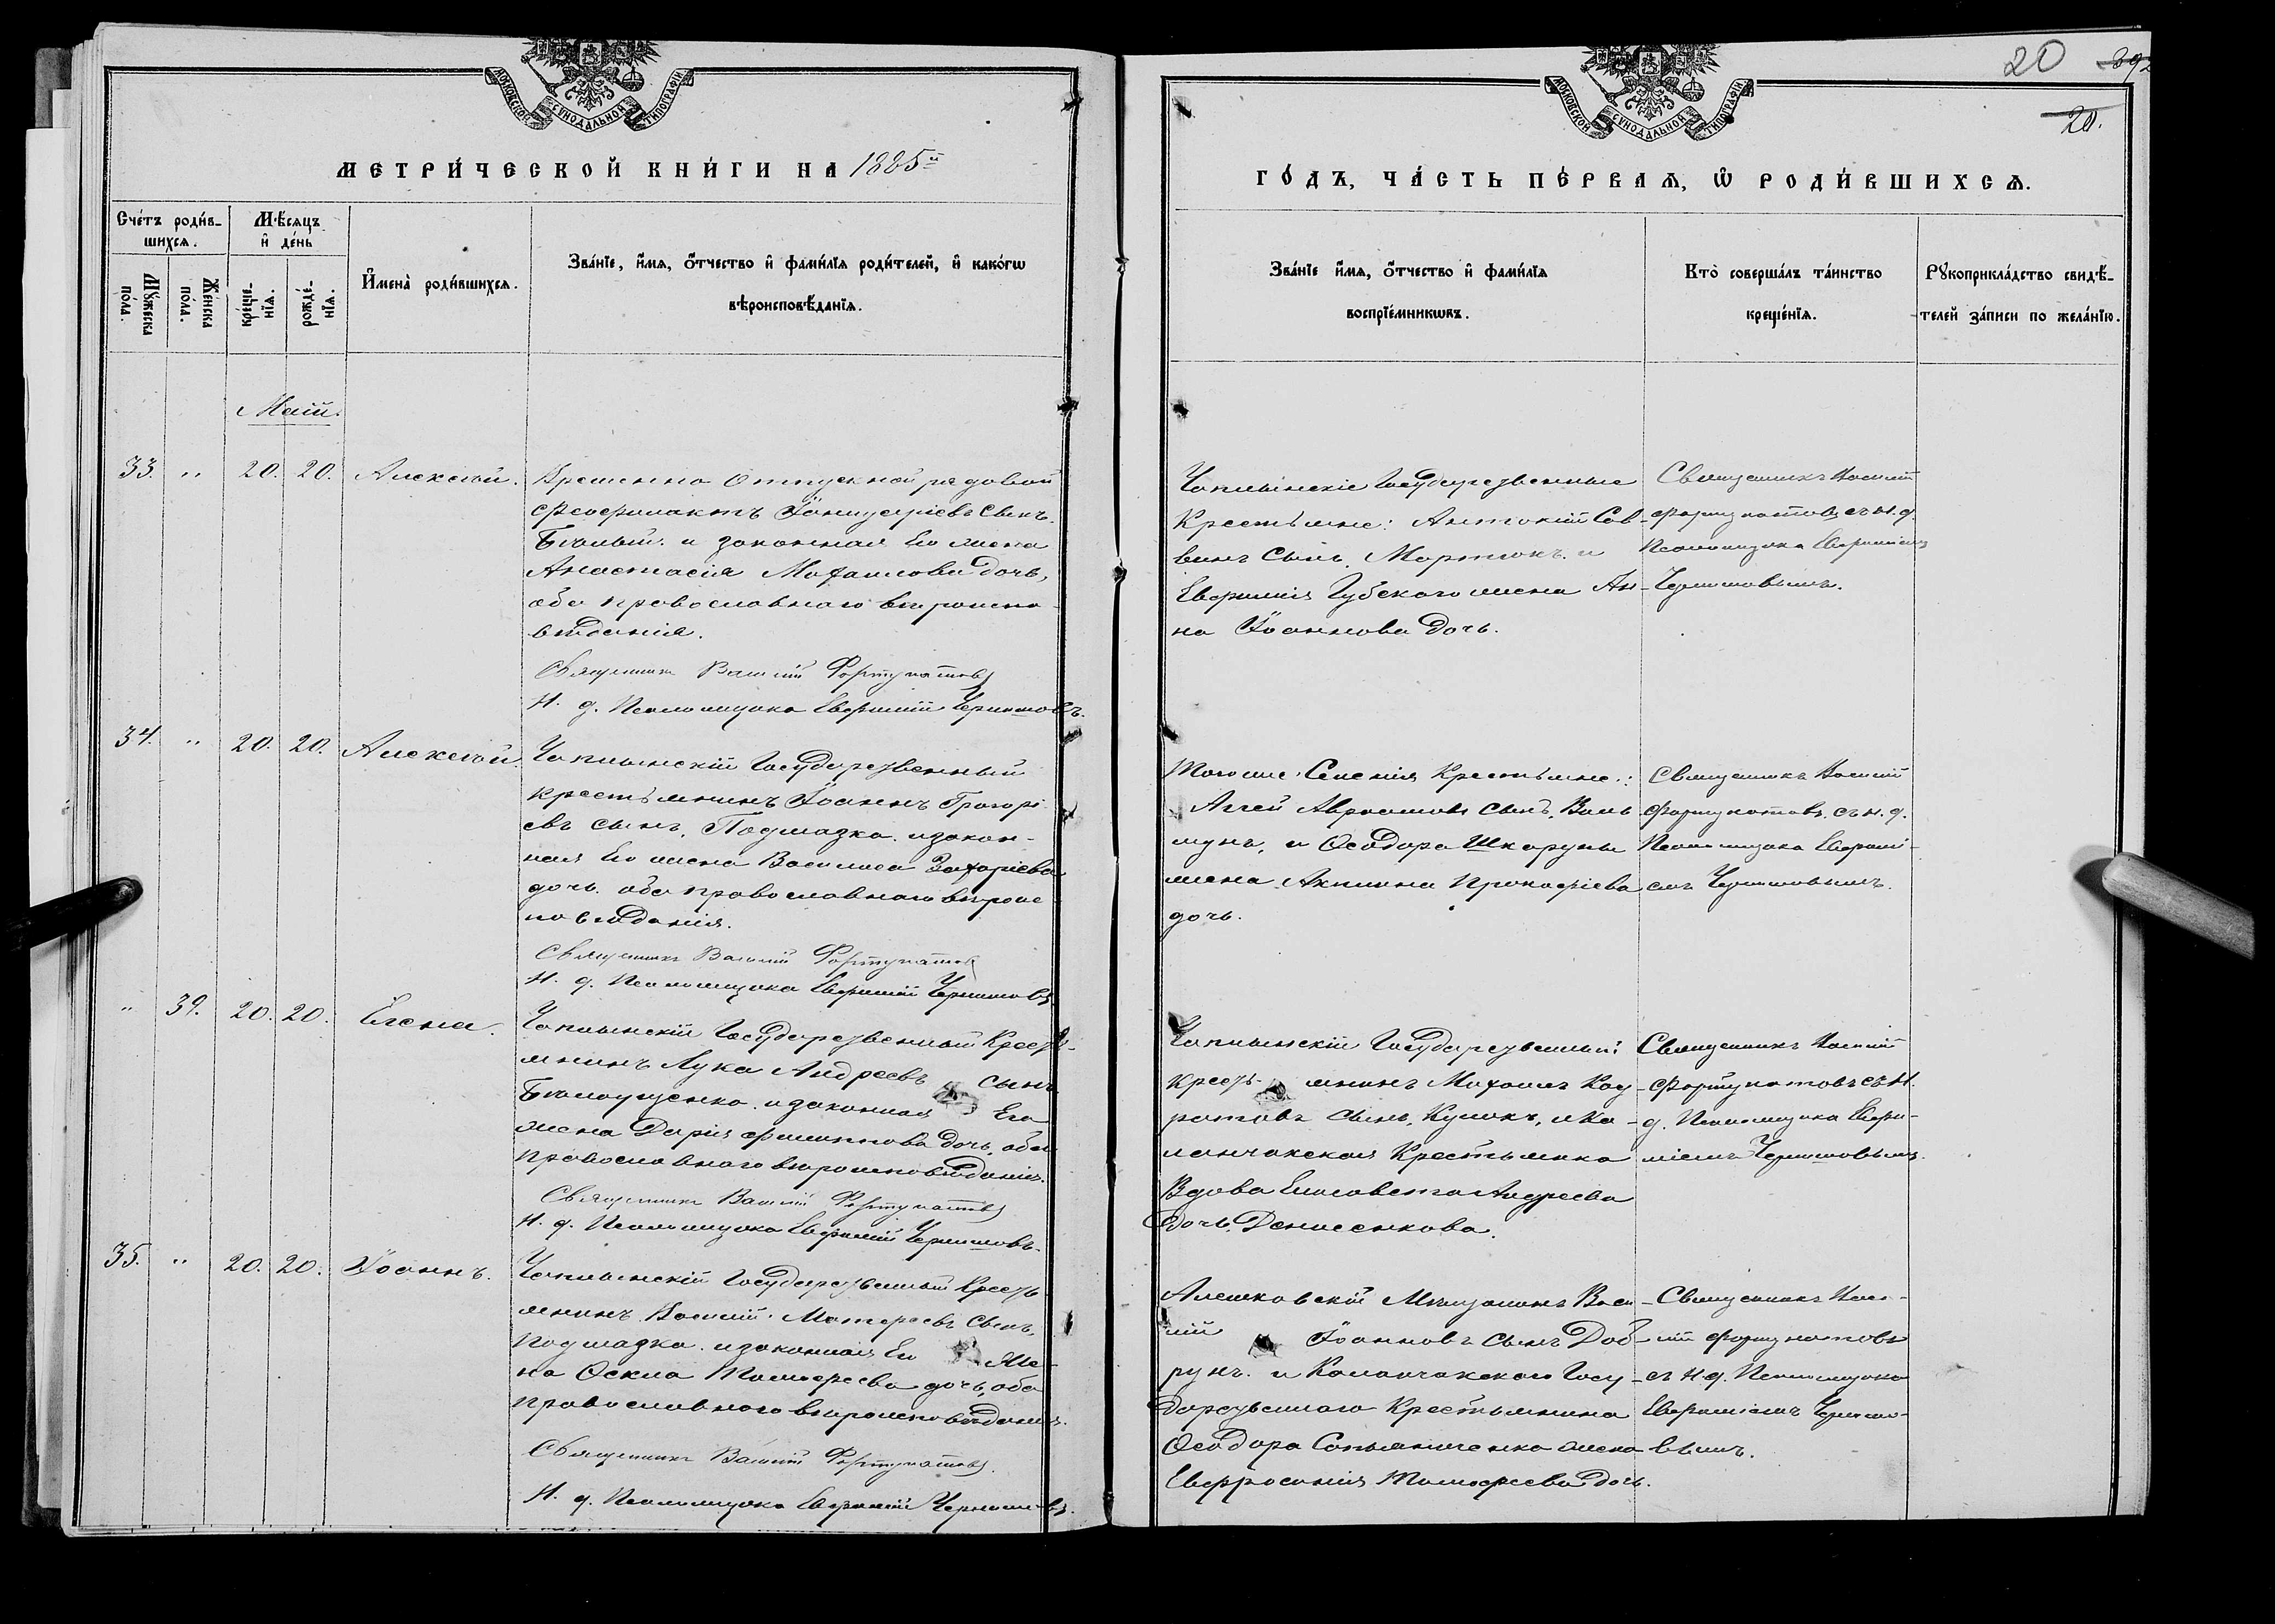 МОСКОВСКОЙ СѴНОДАЛЬНОЙ ТИПОГРАФІИ
МЕТРИ́ЧЕСКОЙ КНИ́ГИ НА 1885й
Сче́тъ роди́в-
шихсѧ.
Мѣ́сѧцъ
и҆ де́нь
Мꙋ́жеска
по́ла.
Же́нска
по́ла.
креще́-
нїѧ.
рожде́-
нїѧ.
И҆мена̀ роди́вшихсѧ.
Зва́нїе, и҆́мѧ, ѻ҆́тчество и҆ фамѝлїѧ роди́телей, и҆ како́гѡ
вѣроисповѣ́данїѧ.
Май.
33. " 20. 20. Алексѣй.
Временно отпускной рядовой
Феофилактъ Іоанн сынъ
Бѣлый и законная его жена
Анастасія Михаилова дочь,
оба православнаго вѣроиспо-
вѣданія.
Священникъ Василій Фортунатовъ
И. д. Псаломщика Евфимій Чернишовъ.
34. " 20. 20. Алексѣй.
Чаплынскій Государственный
крестьянинъ Іоаннъ Григорі-
евъ сынъ, Подмазка и закон-
ная его жена Василиса Захаріева
дочь. оба православнаго вѣроис-
повѣданія.
Священникъ Василій Фортунатовъ
И. д. Псаломщика Евфимій Чернишовъ
" 39. 20. 20. Елена.
Чаплынскій Государственный Кресть-
янинъ Лука Андреевъ сынъ
и законная Его
жена Дарія Филиппова дочь, оба
православнаго вѣроисповѣданія.
Священникъ Василій Фортунатовъ
И. д. Псаломщика Евфимій Чернишовъ.
35. " 20. 20. Іоаннъ.
Чаплынскій Государственный Кресть-
янинъ Василій Матфеевъ сынъ,
Подмазка и законная Ег же-
на Оекла Тимофеева дочь, оба
православнаго вѣроисповѣданія.
Священникъ Василій Фортунатовъ.
И. д. Псаломщика Евфимій Чернишовъ.
20
392
20.
МОСКОВСКОЙ СѴНОДАЛЬНОЙ ТИПОГРАФІИ
ГО́ДЪ, ЧА́СТЬ ПЕ́РВАѦ, Ѡ҆ РОДИ́ВШИХСѦ.
Зва́нїе и҆́мѧ, ѻ҆́тчество и҆ фамѝлїѧ
воспрїе́мникѡвъ.
Кто̀ соверша́лъ та́инство
креще́нїѧ.
Рꙋкоприкла́дство свидѣ́-
телей за́писи по жела́нїю.
Чаплынскіе Государственные
Крестьяне: Антоній Сав-
винъ сынъ, Мартюкъ и
Евфимія Губскаго жена Ан-
на Іоаннова дочь.
Священникъ Василій
Фортунатовъ съ и. д.
Псаломщика Евфиміемъ
Чернишовымъ.
Тогоже Селенія Крестьяне:
Аггей Авраамовъ сынъ,
и Ѳеодора Шкарупы
жена Акилина Прокофіева
дочь.
Священникъ Василій
Фортунатовъ съ и. д.
Псаломщика Евфимі-
емъ Чернишовымъ.
Чаплынскій Государственный
кресть- янинъ Михаилъ Код-
ратовъ сынъ, Кулакъ, и Ка-
ланчакская Крестьянка
Вдова Елисавета Андреева
дочь Денисенкова.
Священникъ Василій
Фортунатовъ съ И.
д. Псаломщика Евфи-
міемъ Чернишовымъ.
Алешковскій Мѣщанинъ Васи-
лій Іоанновъ сынъ Доб-
рунъ. и Каланчакскаго Госу-
дарственнаго Крестьянина
Ѳеодора жена
Евфросинія Тимофеева дочь.
Священникъ Васи-
лій Фортунатовъ
съ И. д. Псаломщика
Евфиміемъ Чернишо-
вымъ.